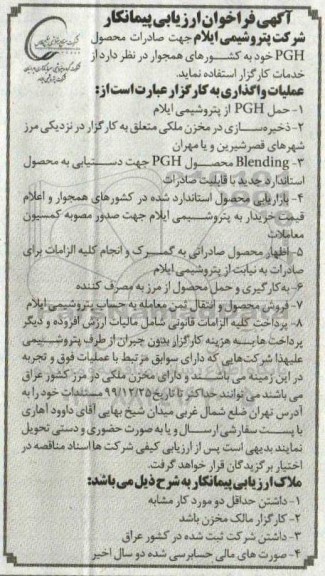 آگهی فراخوان ارزیابی پیمانکار
شرکت پتروشیمی ایلام جهت صادرات محصول
PGH خود به کشورهای همجوار در نظر دارد از
خدمات کارگزار استفاده نماید.
عملیات واگذاری به کارگزار عبارت است از:
۱- حمل PGH از پتروشیمی ایلام
۲- ذخیره‌سازی در مخزن ملکی متعلق به کارگزار در نزدیکی مرز
شهرهای قصرشیرین و یا مهران
۳- Blending محصول PGH جهت دستیابی به محصول
استاندارد جدید با قابلیت صادرات
۴- بازاریابی محصول استاندارد شده در کشورهای همجوار و اعلام
قیمت خریدار به پتروشیمی ایلام جهت صدور مصوبه کمسیون
معاملات
۵- اظهار محصول صادراتی به گمرک و انجام کلیه الزامات برای
صادرات به نیابت از پتروشیمی ایلام
۶- به کارگیری و حمل محصول از مرز به مصرف کننده
۷- فروش محصول و انتقال ثمن معامله به حساب پتروشیمی ایلام
۸- پرداخت کلیه الزامات قانونی شامل مالیات ارزش افزوده و دیگر
پرداخت ها به هزینه کارگزار بدون جبران از طرف پتروشیمی
علیهذا شرکت‌هایی که دارای سوابق مرتبط با عملیات فوق و تجربه
در این زمینه می باشند و دارای مخزن ملکی در مرز کشور عراق
می باشند می توانند حداکثر تا تاریخ ۹۹/۱۲/۲۵ مستندات خود را به
آدرس تهران ضلع شمال غربی میدان شیخ بهایی آقای داوود آهاری
با پست سفارشی ارسال و یا به صورت حضوری و دستی تحویل
نمایند بدیهی است پس از ارزیابی کیفی شرکت ها اسناد مناقصه در
اختیار برگزیدگان قرار خواهد گرفت.
ملاک ارزیابی پیمانکار به شرح ذیل می باشد:
۱- داشتن حداقل دو مورد کار مشابه
۲- کارگزار مالک مخزن باشد
۳- داشتن شرکت ثبت شده در کشور عراق
۴- صورت های مالی حسابرسی شده دو سال اخیر